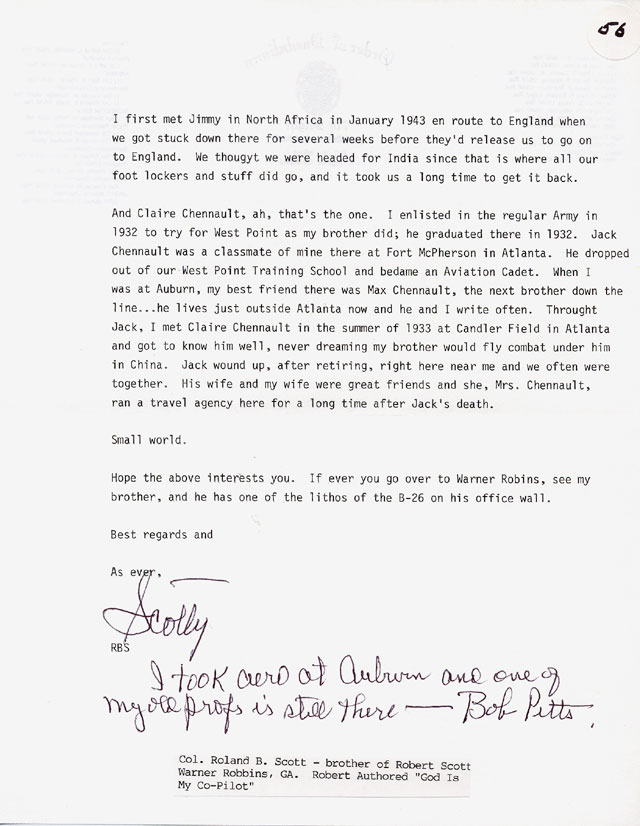 56
I first met Jimmy in North Africa in January 1943 en route to England when
we got stuck down there for several weeks before they'd release us to go on
to England. We thougyt we were headed for India since that is where all our
foot lockers and stuff did go, and it took us a long time to get it back.
And Claire Chennault, ah, that's the one. I enlisted in the regular Army in
1932 to try for West Point as my brother did; he graduated there in 1932. Jack
Chennault was a classmate of mine there at Fort McPherson in Atlanta. He dropped
out of our West Point Training School and bedame an Aviation Cadet. When I
was at Auburn, my best friend there was Max Chennault, the next brother down the
line...he lives just outside Atlanta now and he and I write often. Throught
Jack, I met Claire Chennault in the summer of 1933 at Candler Field in Atlanta
and got to know him well, never dreaming my brother would fly combat under him
in China. Jack wound up, after retiring, right here near me and we often were
together. His wife and my wife were great friends and she, Mrs. Chennault,
ran a travel agency here for a long time after Jack's death.
Small world.
Hope the above interests you. If ever you go over to Warner Robins, see my
brother, and he has one of the lithos of the B-26 on his office wall.
Best regards and
As ever,
Scotty
RBS
I took aero at Auburn and one of
my old profs is still there — Bob Pitts.
Col. Roland B. Scott - brother of Robert Scott
Warner Robbins, GA. Robert Authored "God Is
My Co-Pilot"